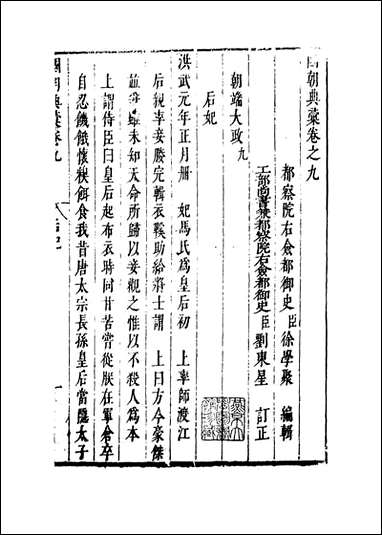 國朝典彙卷之九
都察院右僉都御史臣徐學聚 編輯
工部尚書兼都察院右僉都御史臣劉東星 訂正
朝端大政九
后妃
洪武元年正月冊 妃馬氏為皇后初 上率師渡江
后親率妾媵完緝衣鞋助給將士謂 上曰方今豪傑
並爭雖未知天命所歸以妾觀之惟以不殺人為本
上謂侍臣曰皇后起布衣時同甘苦嘗從朕在軍倉卒
自忍饑餓懷糗餌食我昔唐太宗長孫皇后當隱太子
國朝典彙卷九
后妃
一